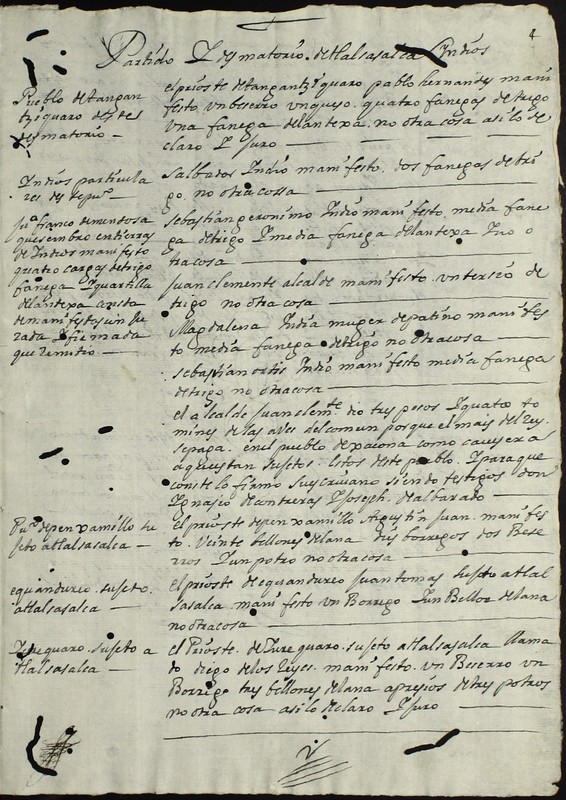 4
Partido Y desmatorio. de tlalsasalca Yndios
Pueblo de tangan
tziquaro deste
desmatorio —
el prioste de tangantziquaro pablo hernandes mani
festo vn beserro vn queso. quatro fanegas de trigo
vna fanega de lantexa. no otra cosa asi lo de
claro Y Juro
Yndios particula
res
salbador Yndio manifesto. dos fanegas de tri
go. no otra cossa
Juº franco de mendosa
que sembro en tierras
de Yndios manifesto
quatro cargas de trigo
fanega Y quartilla
de lantexa consta
de manifestosion Ju
rada Y firmada
que remitio —
sebastian geronimo Yndio manifesto. media fane
ga de trigo Y media fanega de lantexa Y no o
tra cosa
Juan clemente alcalde manifesto. vn tersio de
trigo no otra cosa
Magdalena Yndia muger de patino manifes
to media fanega de trigo no otra cosa
sebastian ortis Yndio manifesto media fanega
de trigo no otra cosa
el alcalde Juan clemte dio tres pesos Y quatro to
mines de las aves del comun porque el mais del Rey.
se paga. en el pueblo de xacona como cauesera
a que estan sujetos. estos deste pueblo. Y para que
conste lo firmo su escriuano siendo testigos don
Ygnasio de contreras Y Joseph. de albarado
Puº de penxamillo su
jeto a tlalsasalca —
el prioste de penxamillo Agustin Juan. manifes
to. Veinte bellones de lana dos borregos dos Bese
rros Y un potro no otra cosa
equandureo. sujeto.
a tlalsasalca —
el prioste de equandureo Juan tomas sujeto a tlal
sasalca. manifesto vn Borrego Y un Bellon de lana
no otra cosa
Yurequaro. sujeto a
tlalsasalca —
el Prioste. de Yurequaro. sujeto a tlalsasalca llama
do diego de los Reyes. manifesto. vn Beserro vn
Borrego tres bellones de lana apresios de tres potros
no otra cosa asi lo declaro Y Juro